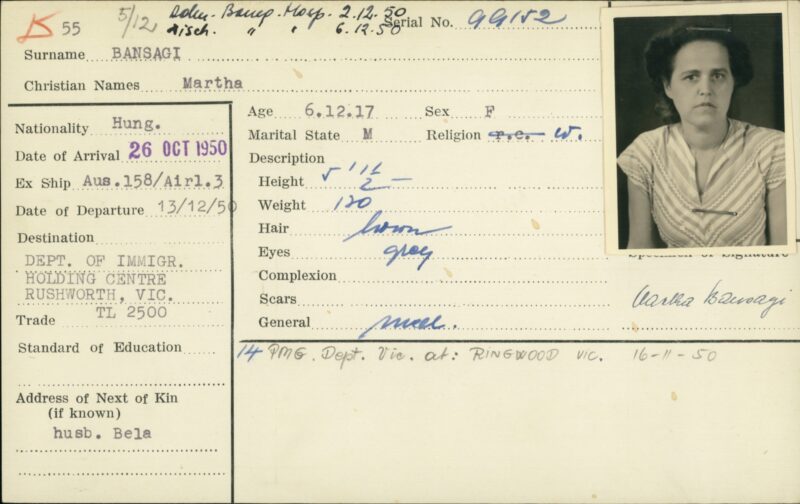 55 5/12 Adm. Bamp. Hosp. 2.12.50
Disch. " " 6.12.50
Serial No.
Surname BANSAGI
Christian Names Martha
Nationality Hung.
Date of Arrival 26 OCT 1950
Ex Ship Aus.158/Airl.3
Date of Departure 13/12/50
Destination
DEPT. OF IMMIGR.
HOLDING CENTRE
RUSHWORTH, VIC.
Trade TL 2500
Standard of Education
Address of Next of Kin
(if known)
husb. Bela
Age 6.12.17 Sex F
Marital State M Religion r.c. W.
Description
Height 5' 1 1/2
Weight 120
Hair brown
Eyes grey
Complexion
Scars
General
Specimen of Signature
Bansagi
14 PMG. Dept. Vic. at: RINGWOOD VIC. 16-11-50